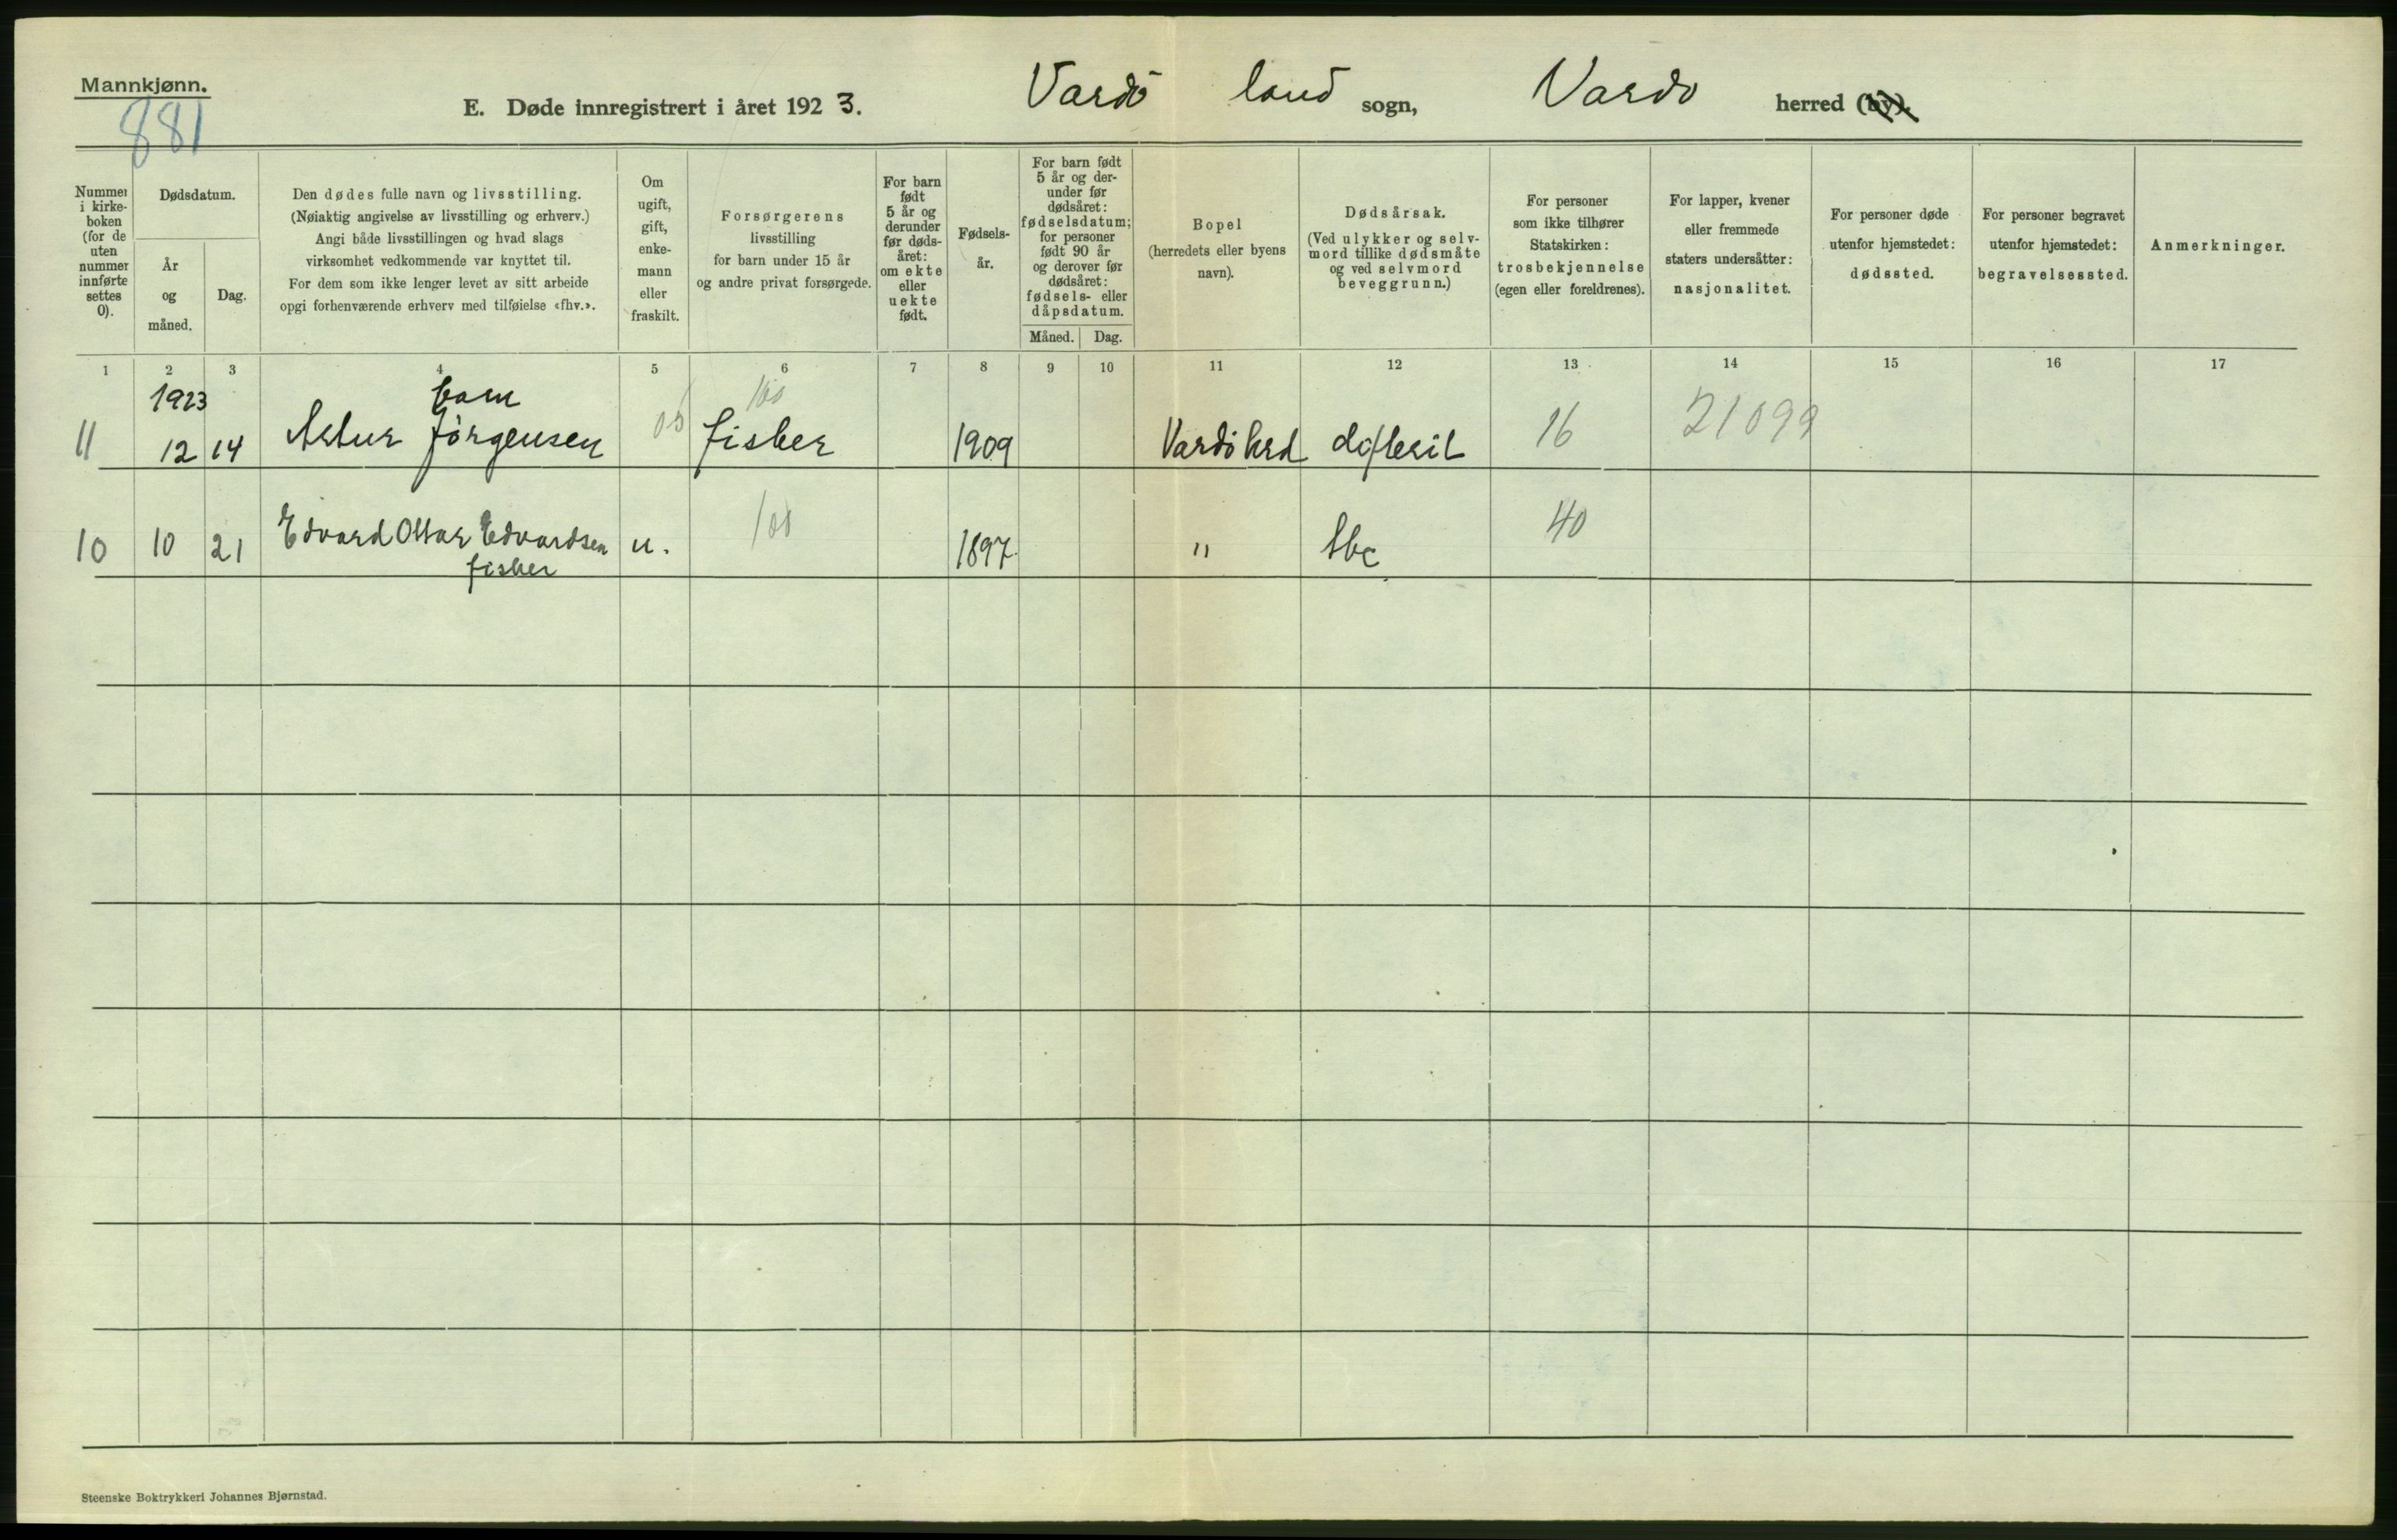 Mannkjønn.
881
E. Døde innregistrert i året 1923. Vardö land sogn, Vardö herred (by).
Nummer i kirke-boken (for de uten nummer innførte settes 0).
Dødsdatum.
År og måned.
Dag.
Den dødes fulle navn og livsstilling.
(Nøiaktig angivelse av livsstilling og erhverv.)
Angi både livsstillingen og hvad slags
virksomhet vedkommende var knyttet til.
For dem som ikke lenger levet av sitt arbeide
opgi forhenværende erhverv med tilføielse «fhv.».
Om ugift, gift, enke-mann eller fraskilt.
Forsørgerens
livsstilling
for barn under 15 år
og andre privat forsørgede.
For barn født 5 år og derunder før døds-året: om ekte eller uekte født.
Fødsels-år.
For barn født 5 år og der-under før dødsåret: fødselsdatum; for personer født 90 år og derover før dødsåret: fødsels- eller dåpsdatum.
Måned. Dag.
Bopel
(herredets eller byens
navn).
Dødsårsak.
(Ved ulykker og selv-
mord tillike dødsmåte
og ved selvmord
beveggrunn.)
For personer
som ikke tilhører
Statskirken:
trosbekjennelse
(egen eller foreldrenes).
For lapper, kvener
eller fremmede
staters undersåtter:
nasjonalitet.
For personer døde
utenfor hjemstedet:
dødssted.
For personer begravet
utenfor hjemstedet:
begravelsessted.
Anmerkninger.
1 2 3 4 5 6 7 8 9 10 11 12 13 14 15 16 17
1923 barn 100
11 12 14 Artur Jörgensen 05 fisker 1909 Vardö hrd difterit 16 21099
10 10 21 Edvard Ottar Edvardsen u. 100 1897 " tbc 40
fisker
Steenske Boktrykkeri Johannes Bjørnstad.